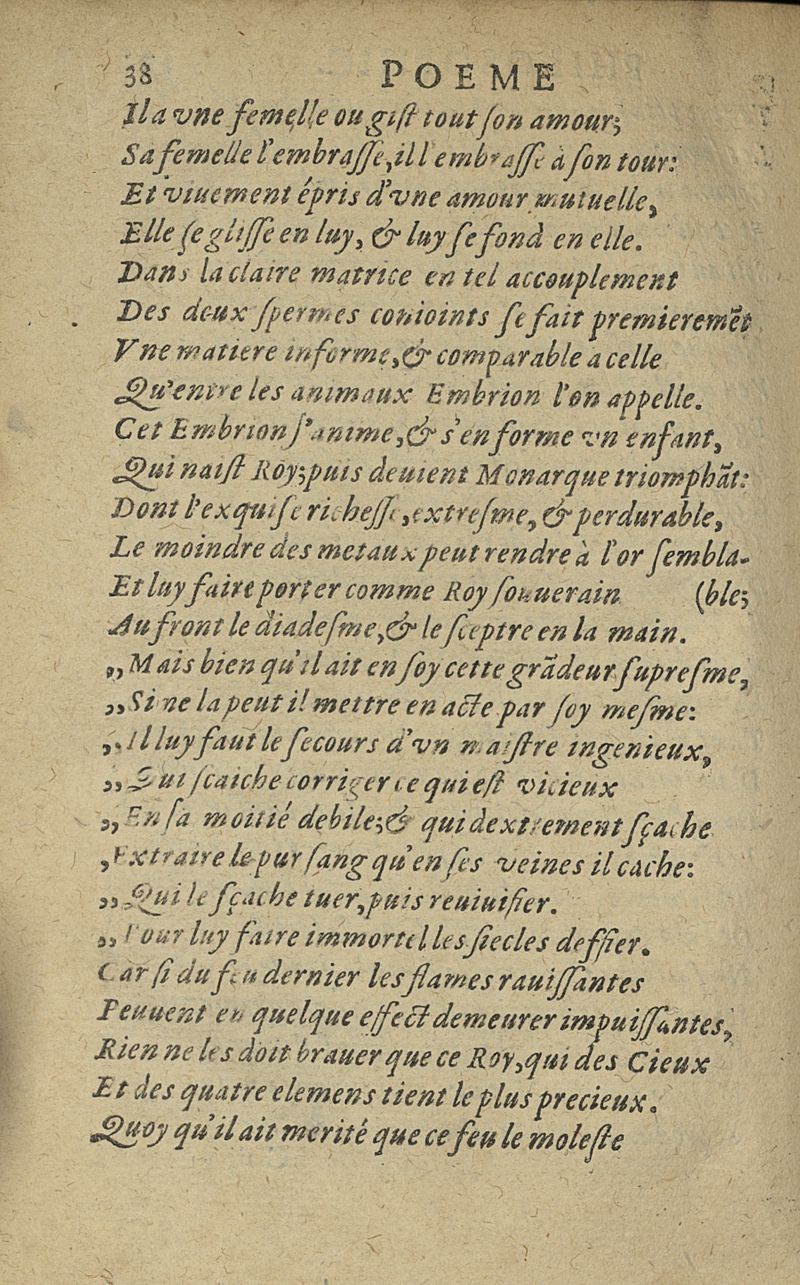 38 POEME
Il a vne femelle ou gist tout son amour;
Sa femelle l'embrasse, il l'embrasse à son tour:
Et viuement épris d'vne amour mutuelle,
Elle se glisse en luy, & luy se fond en elle.
Dans la claire matrice en tel accouplement
Des deux spermes conioints se fait premieremẽt
Vne matiere informe, & comparable a celle
Qu'entre les animaux Embrion l'on appelle.
Cet Embrion s'anime, & s'en forme vn enfant,
Qui naist Roy; puis deuient Monarque triomphãt:
Dont l'exquise richesse, extresme, & perdurable,
Le moindre des metaux peut rendre à l'or sembla-
Et luy faire porter comme Roy souuerain (ble;
Au front le diadesme, & le sceptre en la main.
,,Mais bien qu'il ait en soy cette grãdeur supresme,
,,Si ne la peut il mettre en acte par soy mesme:
,,Il luy faut le secours d'vn maistre ingenieux,
,,Qui scaiche corriger ce qui est vicieux
,,En sa moitié debile; & qui dextrement sçache
,Extraire le pur sang qu'en ses veines il cache:
,,Qui le sçache tuer, puis reuiuifier.
,,Pour luy faire immortel les siecles deffier.
Car si du feu dernier les flames rauissantes
Peuuent en quelque effect demeurer impuissantes,
Rien ne les doit brauer que ce Roy, qui des Cieux
Et des quatre elemens tient le plus precieux.
Quoy qu'il ait merité que ce feu le moleste